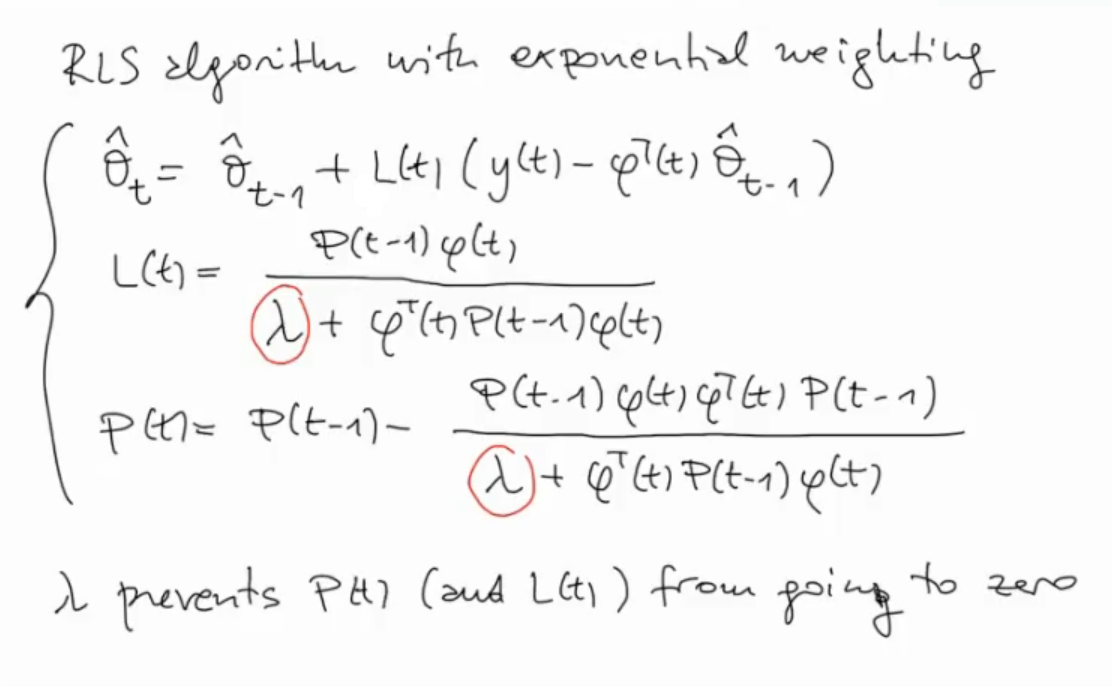 RLS algorithm with exponential weighting
θ̂_t = θ̂_{t-1} + L(t) (y(t) - φᵀ(t) θ̂_{t-1})
L(t) = P(t-1) φ(t) / (λ + φᵀ(t) P(t-1) φ(t))
P(t) = P(t-1) - P(t-1) φ(t) φᵀ(t) P(t-1) / (λ + φᵀ(t) P(t-1) φ(t))
λ prevents P(t) (and L(t)) from going to zero